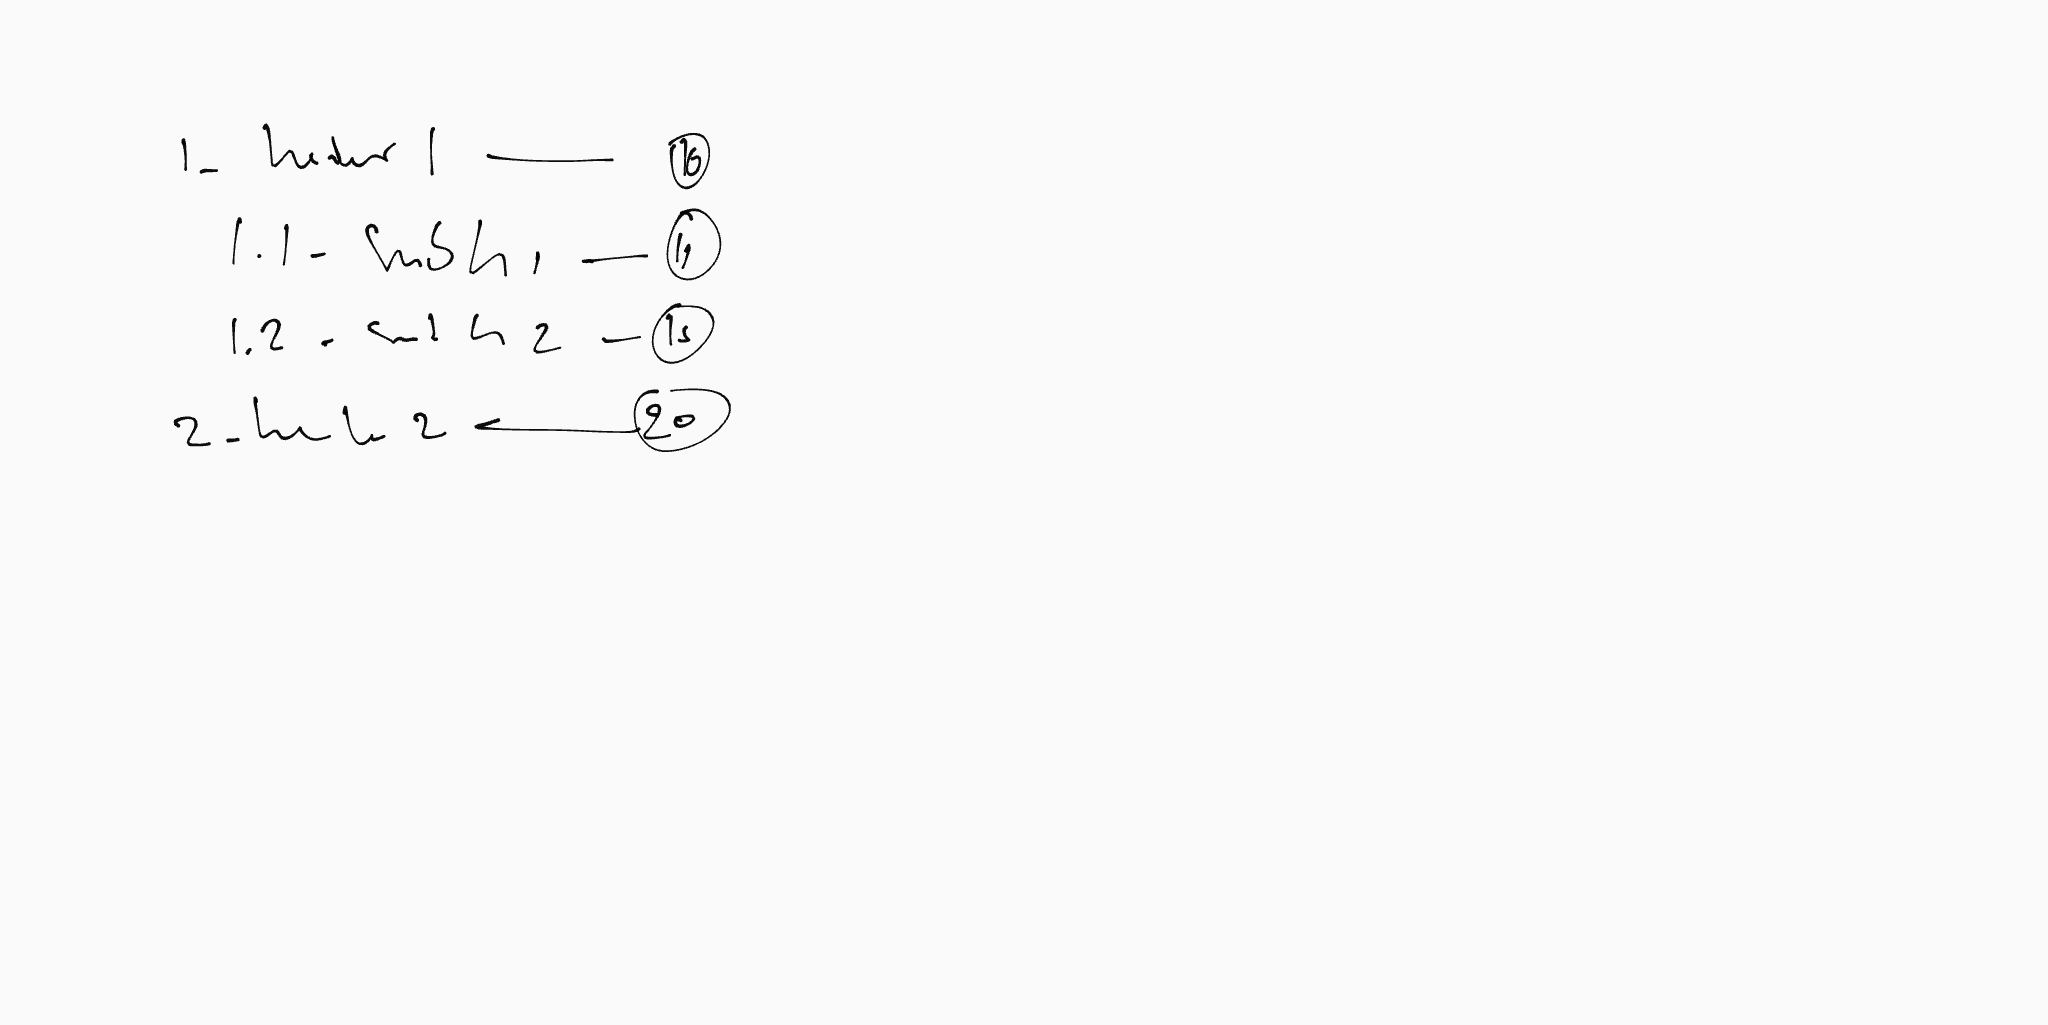 1- header 1 —
1.1- sub h 1 —
1.2 - sub h 2 — 15
2- 2 ← 20